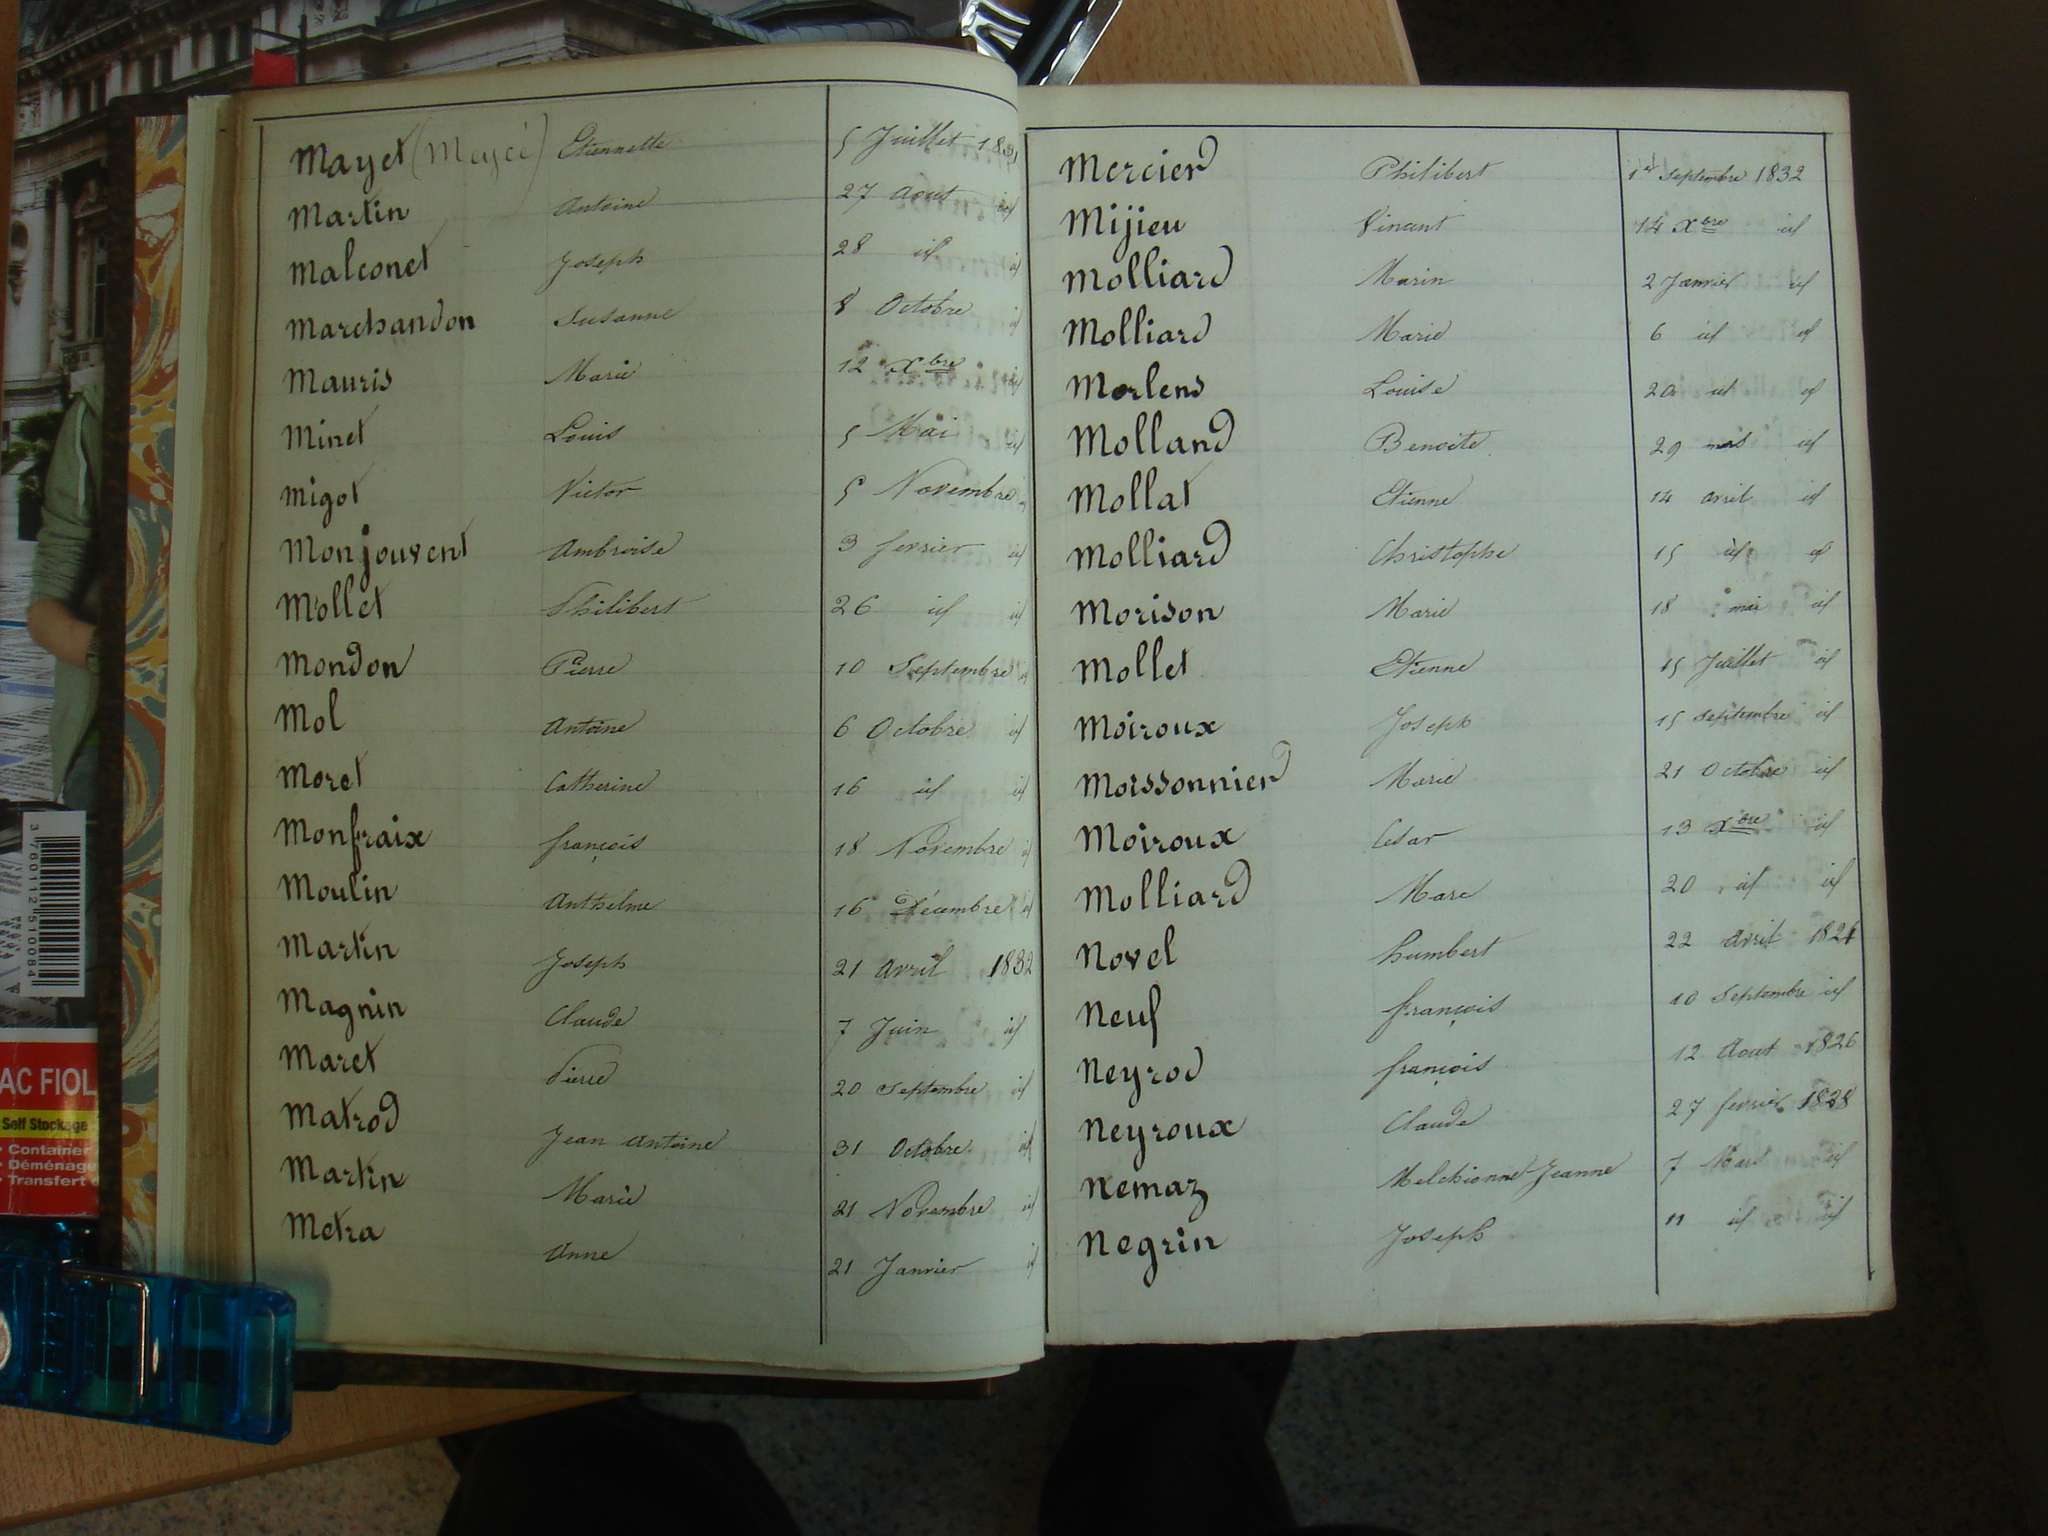 Mayet (Meyei) Etiennette 5 Juillet 1831
Martin Antoine 27 Aout id
Malconet Joseph 28 id id
Marchandon Susanne 8 Octobre id
Mauris Marie 12 Xbre id
Minet Louis 5 Mai id
Migot Victor 5 Novembre
Monjouvent Ambroise 3 fevrier id
Mollet Philibert 26 id id
Mondon Pierre 10 Septembre id
Mol Antoine 6 Octobre id
Moret Catherine 16 id id
Monfraix françois 18 Novembre id
Moulin Anthelme 16 Décembre id
Martin Joseph 21 Avril 1832
Magnin Claude 7 Juin id
Maret Pierre 20 Septembre id
Matrod Jean Antoine 31 Octobre id
Martin Marie 21 Novembre id
Metra Anne 21 Janvier id
Mercier Philibert 1er Septembre 1832
Mijieu Vinant 14 Xbre id
Molliard Marin 2 Janvier id
Molliard Marie 6 id id
Morlens Louise 20 id id
Molland Benoite 29 mars id
Mollat Etienne 14 avril id
Molliard Christophe 15 id id
Morison Marie 18 mai id
Mollet Etienne 15 Juillet id
Moiroux Joseph 15 Septembre id
Moissonnier Marie 21 Octobre id
Moiroux Cesar 13 Xbre id
Molliard Marc 20 id id
Novel humbert 22 Avril 1821
Neuf françois 10 Septembre id
Neyrod françois 12 Aout 1826
Neyroux Claude 27 fevrier 1828
Nemaz Melchionne Jeanne 7 Mars id
Negrin Joseph 11 id id
3 760112 510084
AC FIOL
Self Stockage
• Container
• Déménage
• Transfert